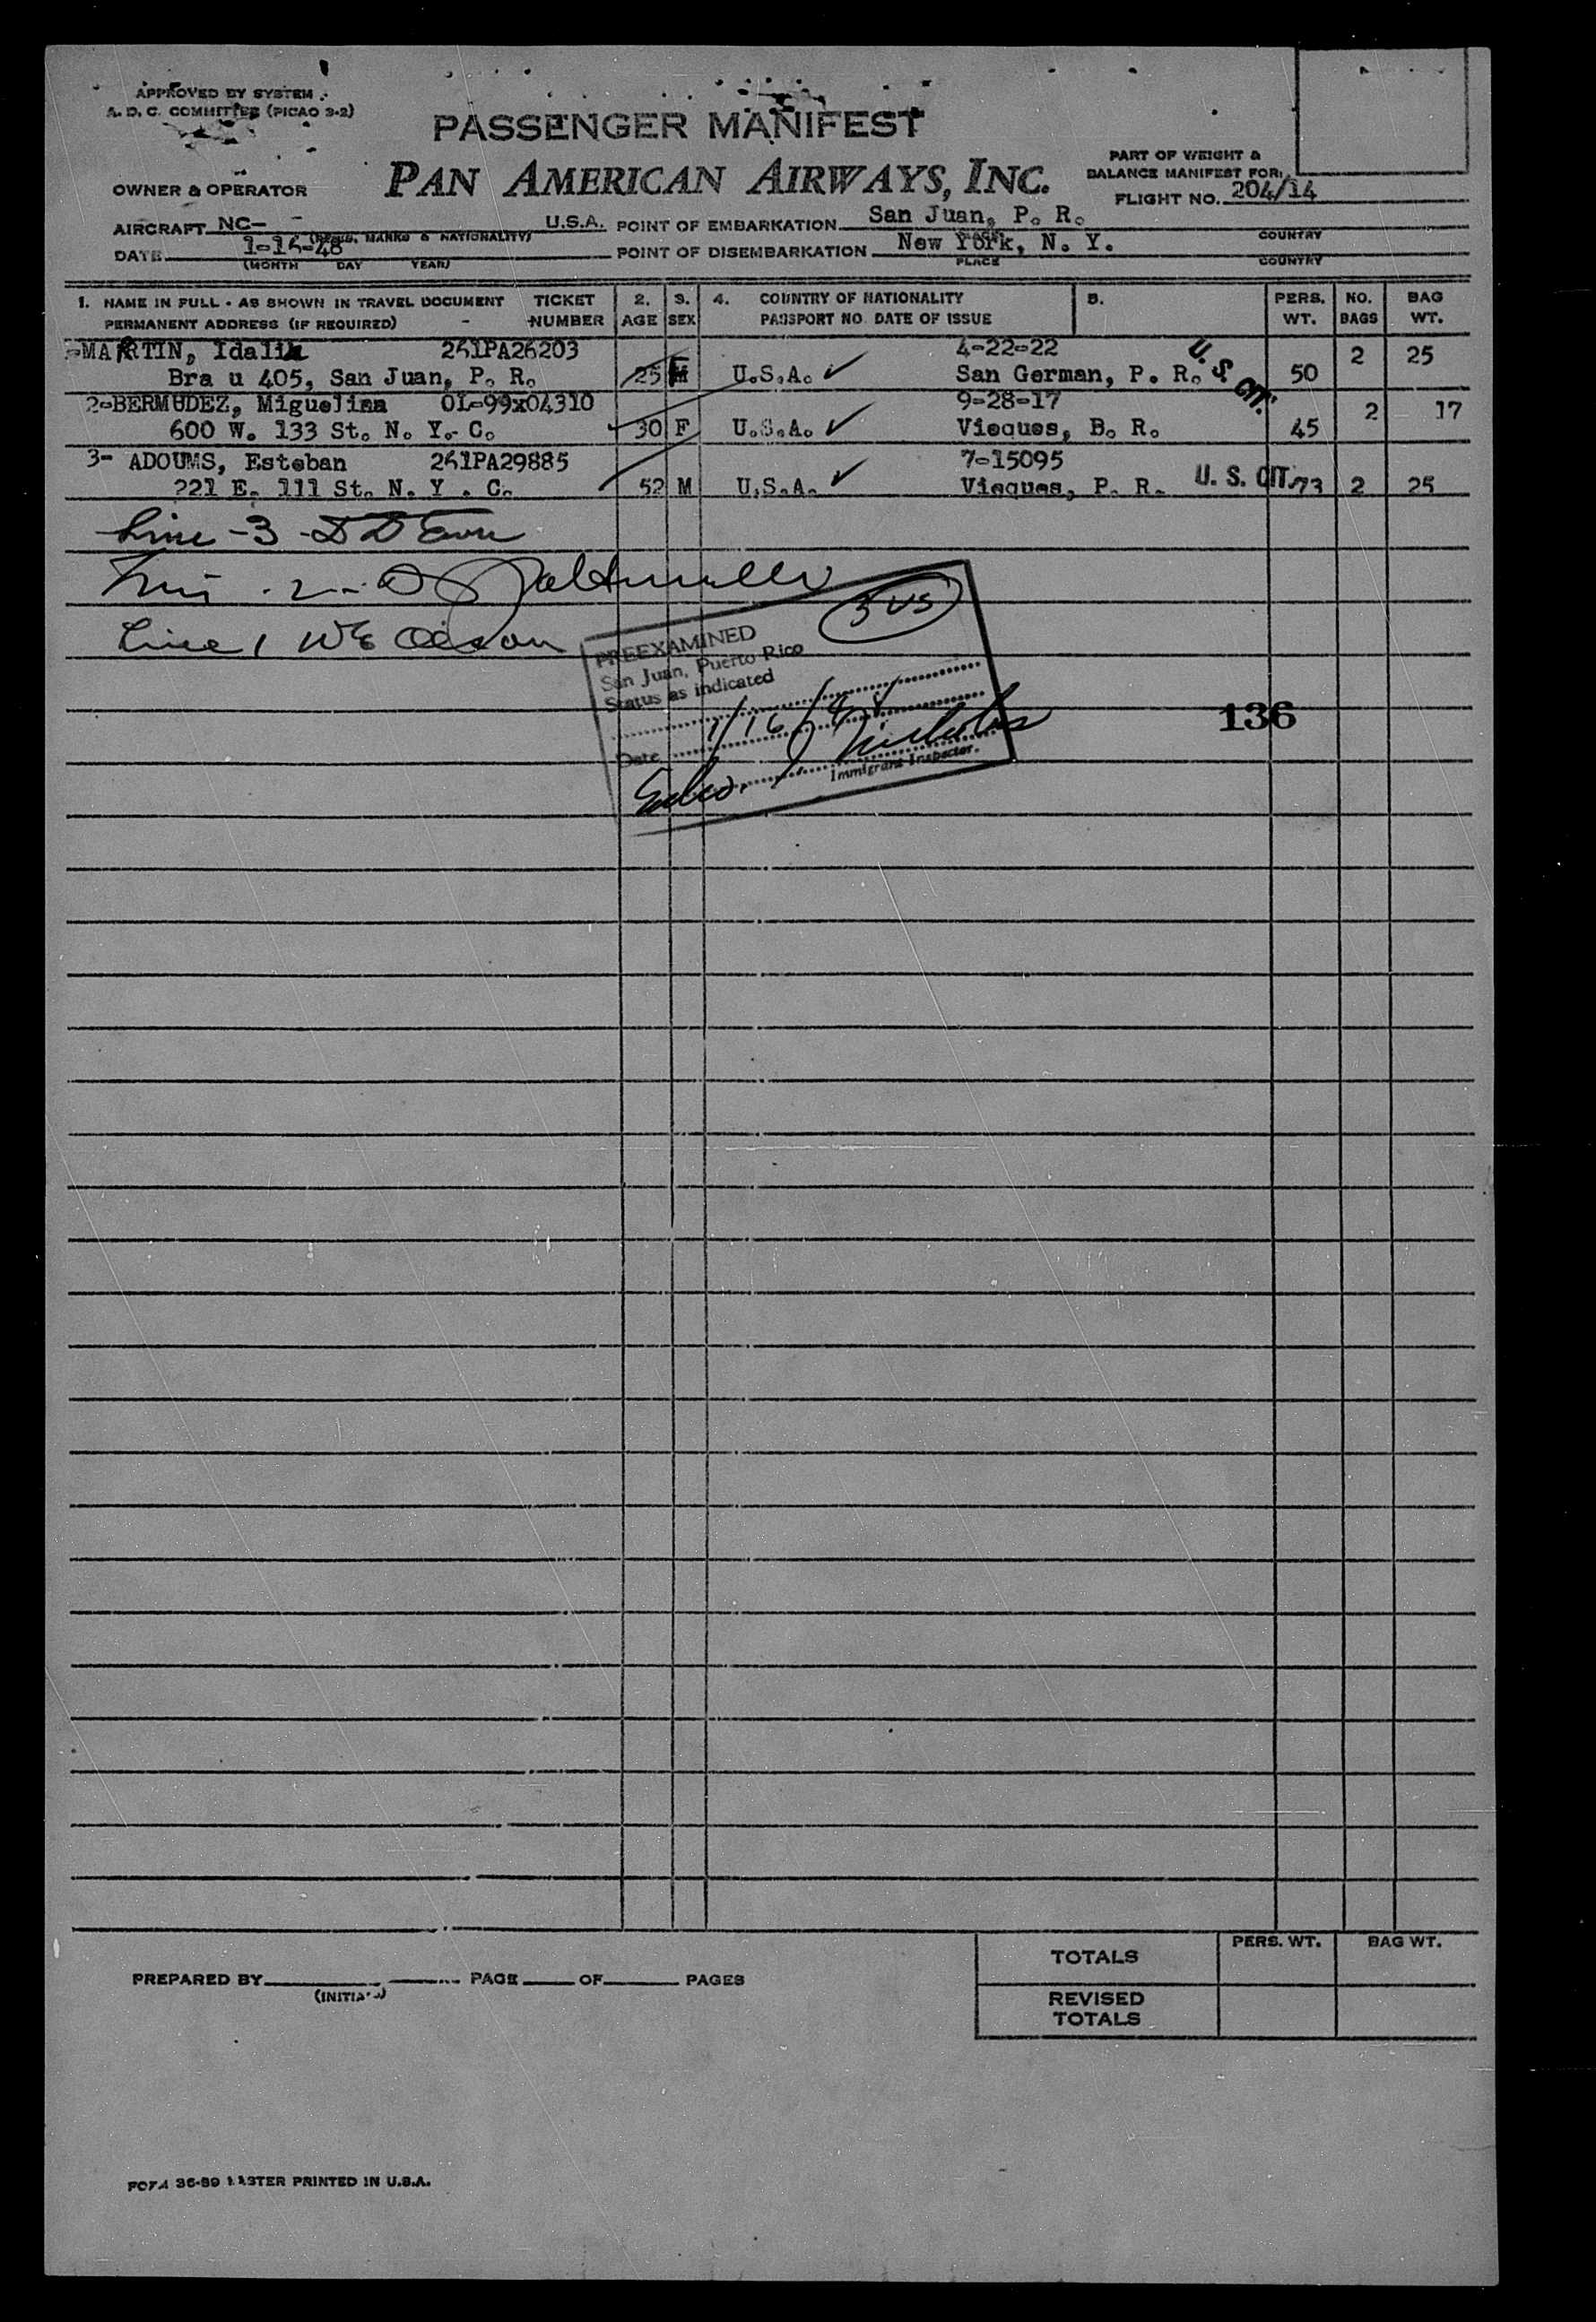 APPROVED BY SYSTEM
A. D. C. COMMITTEE (PICAO 9-2)
PASSENGER MANIFEST
PAN AMERICAN AIRWAYS, INC.
OWNER & OPERATOR
PART OF WEIGHT &
BALANCE MANIFEST FOR:
FLIGHT NO. 204/14
AIRCRAFT NC- - U.S.A. POINT OF EMBARKATION San Juan, P. R.
(REGIS. MARKS & NATIONALITY) PLACE COUNTRY
DATE 1-16-48 POINT OF DISEMBARKATION New York, N. Y.
(MONTH DAY YEAR) PLACE COUNTRY
1. NAME IN FULL - AS SHOWN IN TRAVEL DOCUMENT TICKET 2. 3. 4. COUNTRY OF NATIONALITY 5. PERS. NO. BAG
PERMANENT ADDRESS (IF REQUIRED) - NUMBER AGE SEX PASSPORT NO. DATE OF ISSUE WT. BAGS WT.
-MARTIN, 261PA26203 4-22-22 2 25
Bra u 405, San Juan, P. R. 25 U.S.A. ✓ San German, P. R. U. S. CIT. 50
2-BERMUDEZ, Miguelina 01-99x04310 9-28-17 2 17
600 W. 133 St. N. Y. C. 30 F U.S.A. ✓ Vieques, B. R. 45
3- ADOUMS, Esteban 261PA29885 7-15095
221 E. 111 St. N. Y . C. 52 M U.S.A. ✓ Vieques, P. R. U. S. CIT. 73 2 25
Line - 3 -
2 -
Line 1 WE
3 US
PREEXAMINED
San Juan, Puerto Rico
Status as indicated
Date 1/16/48
Nicholas
Immigrant Inspector.
136
PREPARED BY PAGE OF PAGES
(INITIALS)
PERS. WT. BAG WT.
TOTALS
REVISED
TOTALS
FORM 36-89 MASTER PRINTED IN U.S.A.